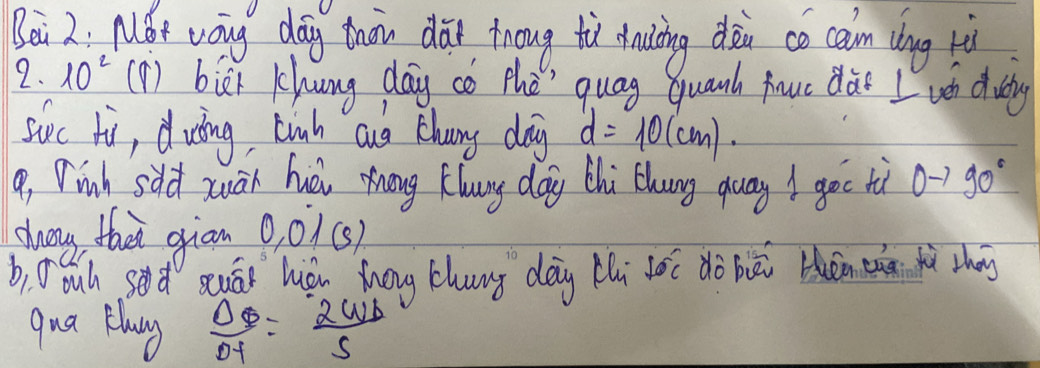 Bài 2: Một vòng dây tròn đặt trong từ trường đều có cảm ứng từ
2.10² (T) biết khung dây có thể quay quanh trục đặt ⊥ với đường
sức từ, đường kính của khung dây d = 10(cm).
a, Tính sđđ xuất hiện trong khung dây khi khung quay 1 góc từ 0→90°
trong thời gian 0,01(s)
b, Tính sđđ xuất hiện trong khung dây khi tốc độ biến thiên của từ thông
qua khung ΔΦ/Δt = 2Wb/s